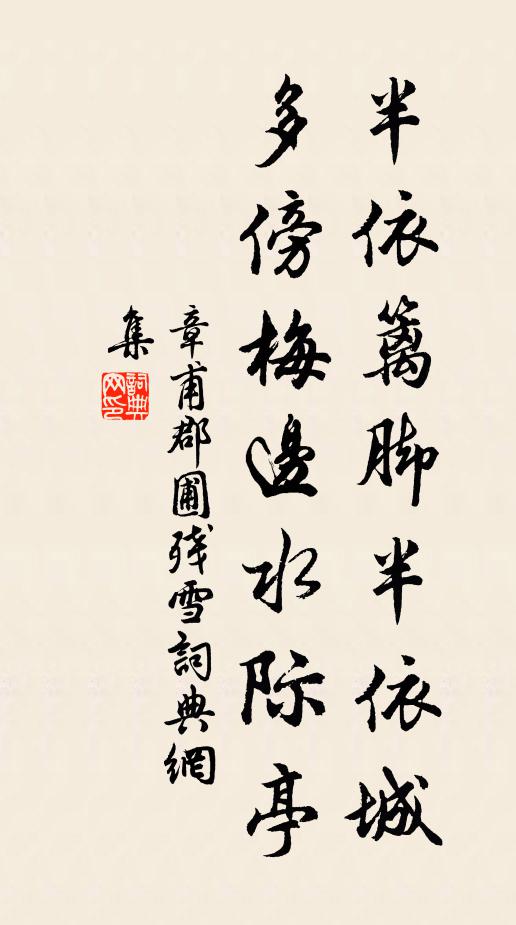 半依篱脚半依城
多傍梅邊水际亭
章甫郡圃残雪詞典網
集
詞典
网印